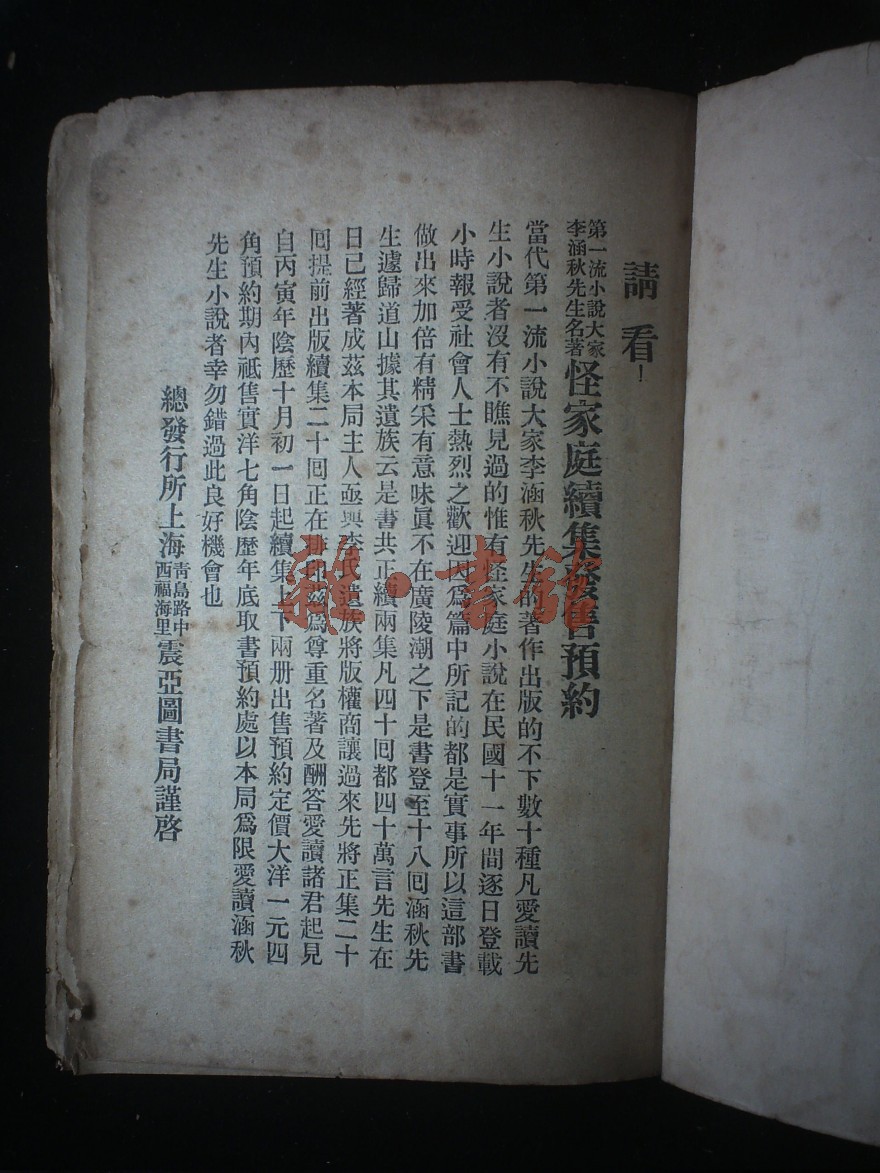 請看！
第一流小說大家
李涵秋先生名著
怪家庭續集發售預約
當代第一流小說大家李涵秋先生的著作出版的不下數十種凡愛讀先
生小說者沒有不瞧見過的惟有怪家庭小說在民國十一年間逐日登載
小時報受社會人士熱烈之歡迎因爲篇中所記的都是實事所以這部書
做出來加倍有精采有意味眞不在廣陵潮之下是書登至十八囘涵秋先
生遽歸道山據其遺族云是書共正續兩集凡四十囘都四十萬言先生在
日已經著成茲本局主人亟與李氏遺族將版權商讓過來先將正集二十
囘提前出版續集二十囘正在排印茲爲尊重名著及酬答愛讀諸君起見
自丙寅年陰歷十月初一日起續集上下兩册出售預約定價大洋一元四
角預約期內祗售實洋七角陰歷年底取書預約處以本局爲限愛讀涵秋
先生小說者幸勿錯過此良好機會也
總發行所上海
靑島路中
西福海里
震亞圖書局謹啓
雜·書館